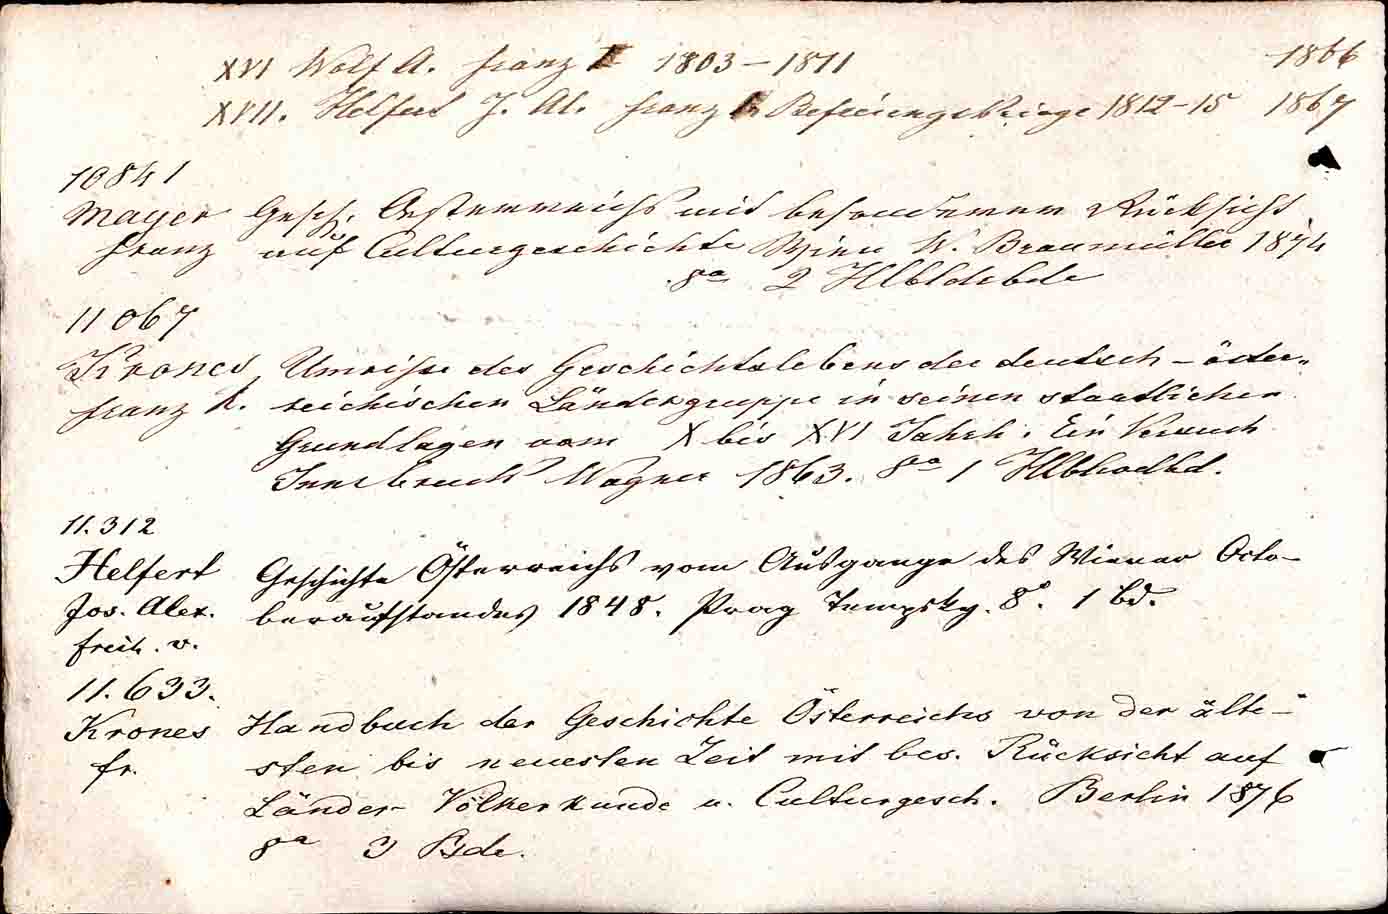 XVI Wolf A. Franz I 1803 – 1811 1866
XVII. Helfert J. Al. Franz I. Befreiungskriege 1812–15 1867
10841
Mayer Gesch. Oesterreichs mit besonderer Rücksicht
Franz auf Culturgeschichte Wien W. Braumüller 1874
8° 2 Hlbldrbde
11067
Krones Umrisse des Geschichtslebens der deutsch – öster-
Franz X. reichischen Ländergruppe in seinen staatlichen
Grundlagen vom X bis XVI Jahrh. Ein Versuch
Innsbruck Wagner 1863. 8° 1
11.312
Helfert Geschichte Österreichs vom Ausgange des Wiener Octo-
Jos. Alex. beraufstandes 1848. Prag Tempsky. 8°. 1 Bd.
Freih. v.
11.633.
Krones Handbuch der Geschichte Österreichs von der älte-
Fr. sten bis neuesten Zeit mit bes. Rücksicht auf
Länder- Völkerkunde u. Culturgesch. Berlin 1876
8° 3 Bde.